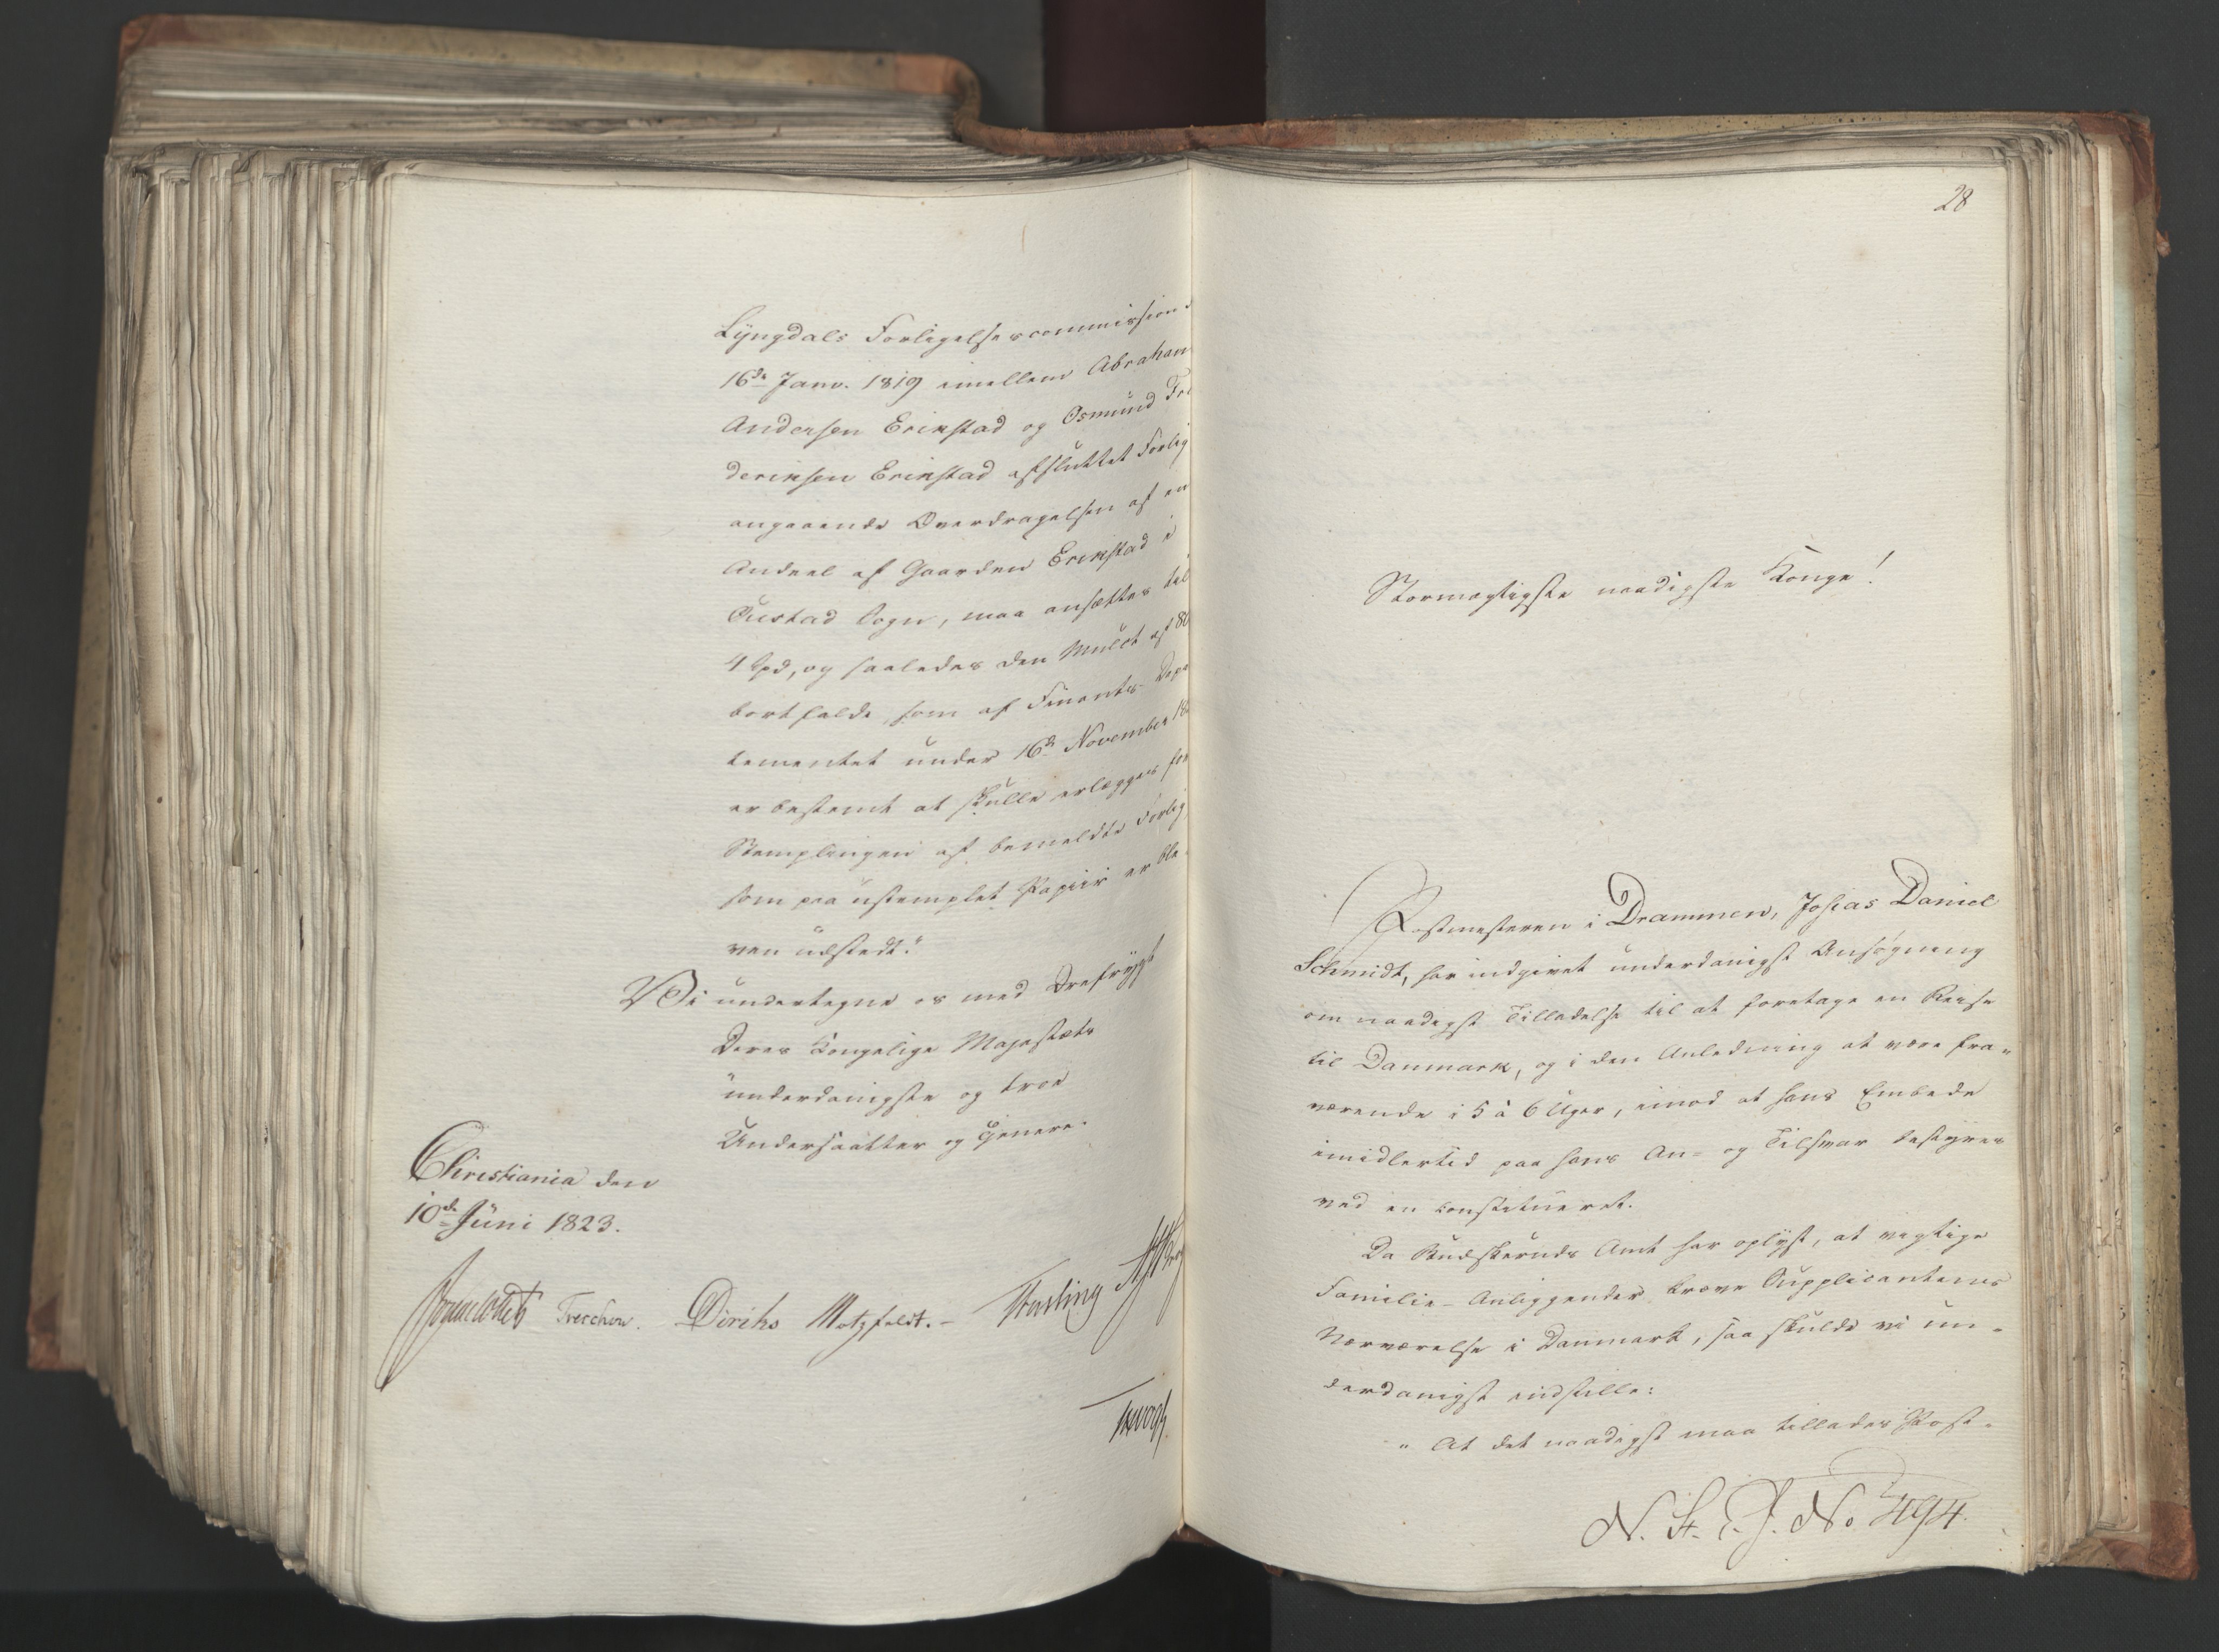 Lyngdals Forligelsescommission
16de Janv. 1819 imellem Abraham
Andersen Erikstad og Osmund Fre
deriksen Erikstad afsluttet Forlig
angaaende Overdragelsen af en
Andeel af Gaarden Erikstad i
Qvestad Sogn, maa ansættes til
4 Spd, og saaledes den Mulct af 80
bortfalde, som af Finants-Depa
tementet under 16de November 18
er bestemt at skulle erlægges for
Stemplingen af bemeldte Forlig
som paa ustemplet Papiir er ble
ven udstedt."
Vi undertegne os med Ærefrygt
Deres Kongelige Majestæts
underdanigste og troe
Undersaatter og Tjenere.
Christiania den
10de Juni 1823.
Treschow. Diriks Motzfeldt.- Fasting
28
Stormægtigste naadigste Konge!
Postmesteren i Drammen, Josias Daniel
Schmidt, har indgivet underdanigst Ansøgning
om naadigst Tilladelse til at foretage en Reise
til Danmark, og i den Anledning at være fra-
værende i 5 à 6 Uger, imod at hans Embede
imidlertid paa hans An- og Tilsvar bestyres
ved en Constitueret.
Da Buskeruds Amt har oplyst, at vigtige
Familie-Anliggender kræve Supplicantens
Nærværelse i Danmark, saa skulde vi un-
derdanigst indstille:
"At det naadigst maa tillades Post-
N. St. S. J. No 494.